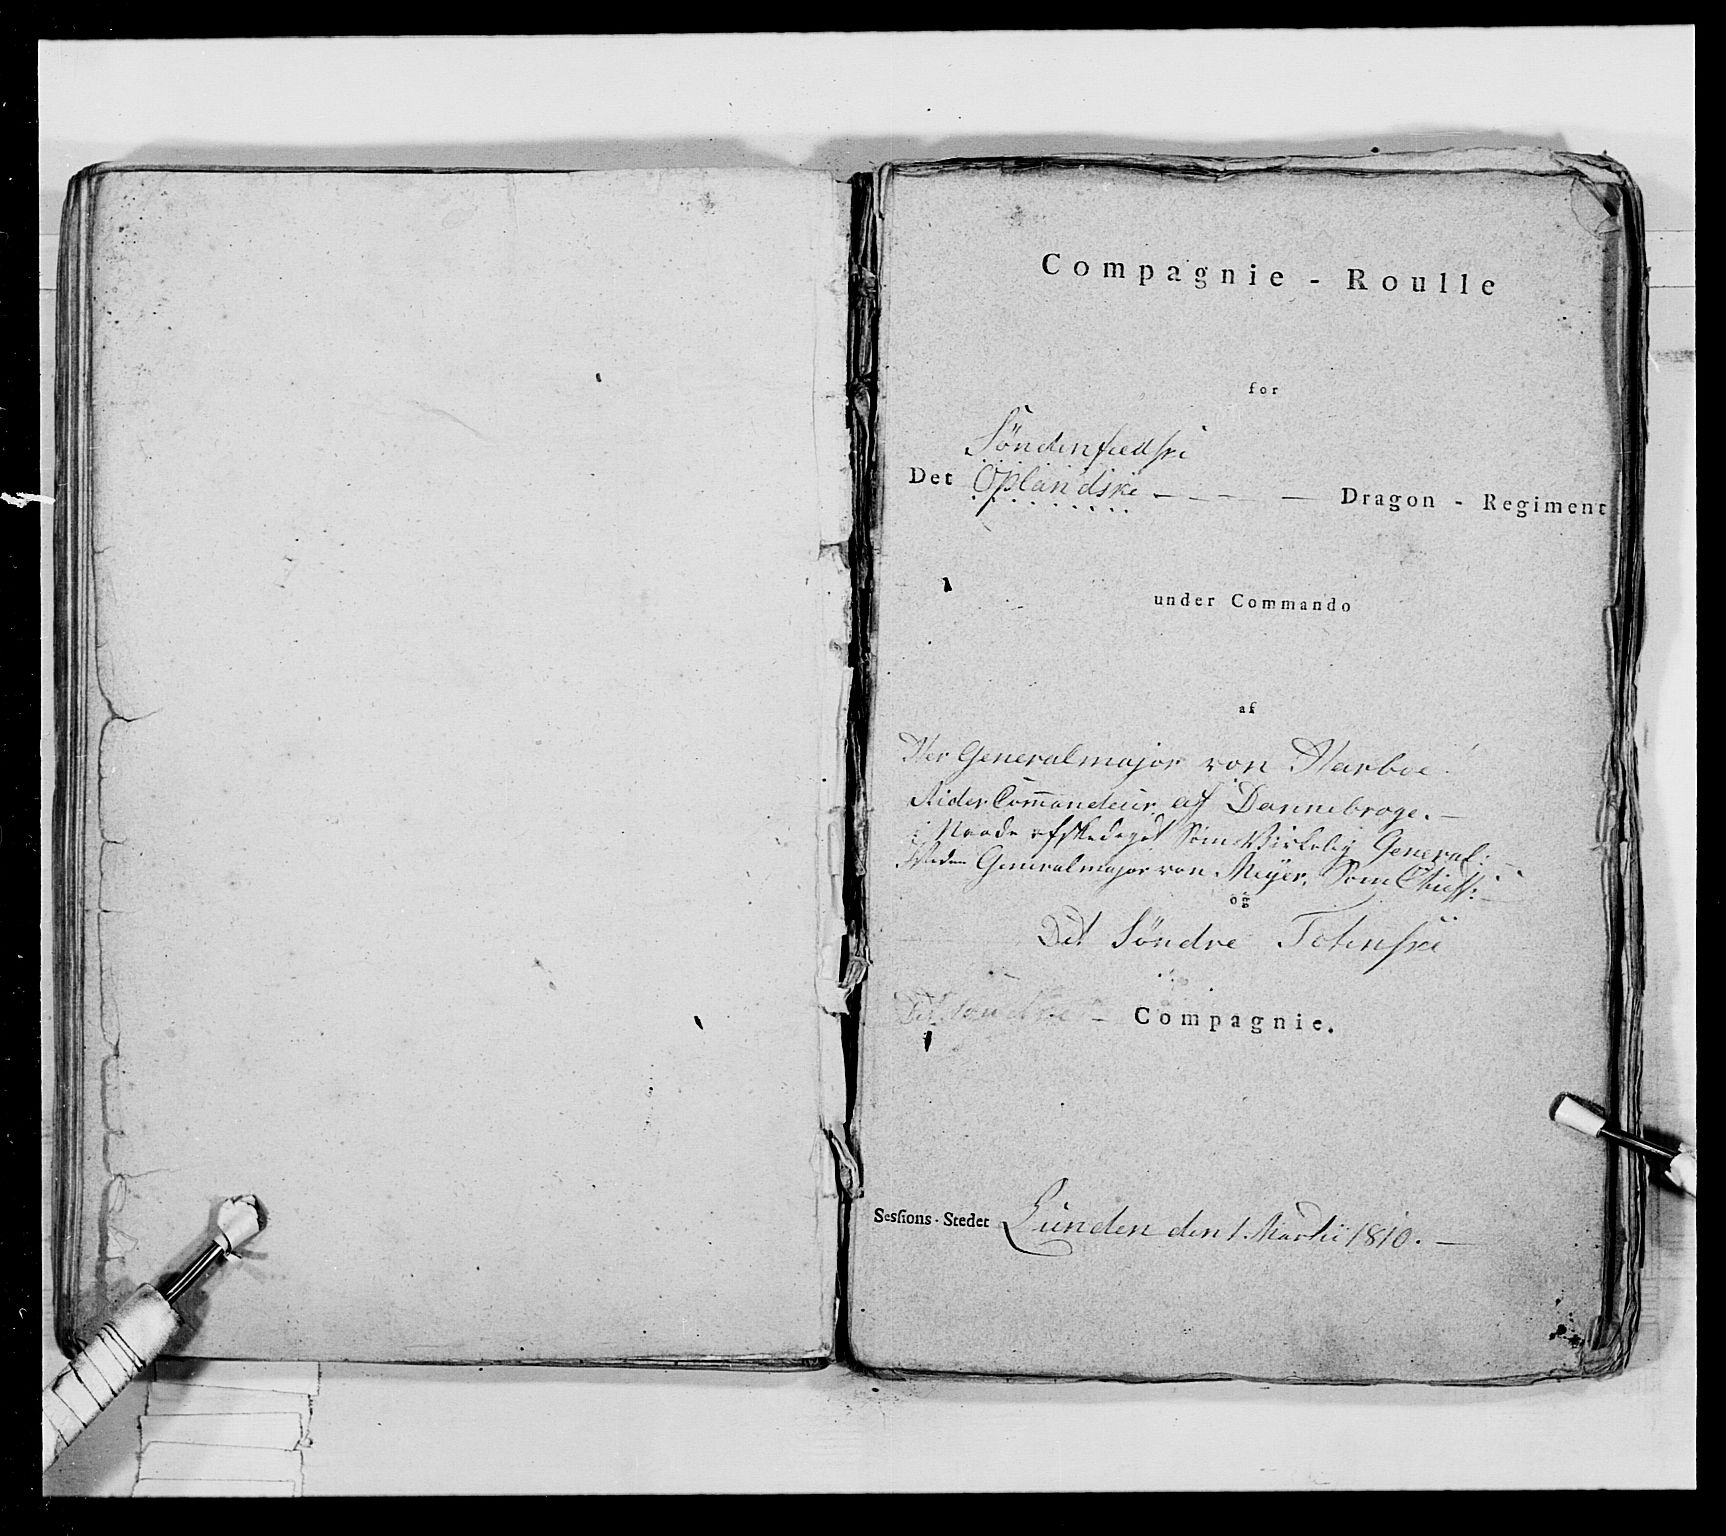 Compagnie - Roulle
for
Søndenfieldske
Det Oplandske - - - - Dragon - Regiment
under Commando
af
Her Generalmajor von Harboe
Rider Commandeur af Dannebroge. -
i Naade afskediget Som Virkelig General:
Generalmajor von Meyer, Som Chieff:
og
Det Søndre Totenske
Det Søndre - Compagnie.
Sessions-Stedet Lunden den 1. Martii 1810. -